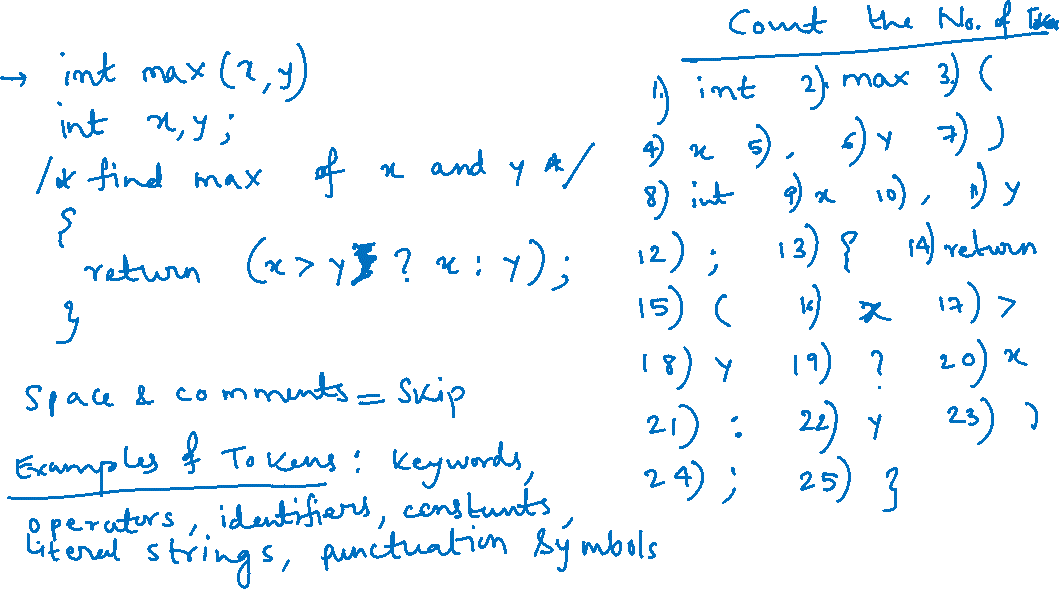 → int max (x, y)
int x, y ;
/* find max of x and y */
{
return (x > y ? x : y) ;
}
Space & comments = Skip
Examples of Tokens : Keywords,
operators, identifiers, constants,
literal strings, punctuation symbols
Count the No. of Token
1) int 2) max 3) (
4) x 5) , 6) y 7) )
8) int 9) x 10) , 11) y
12) ; 13) { 14) return
15) ( 16) x 17) >
18) y 19) ? 20) x
21) : 22) y 23) )
24) ; 25) }